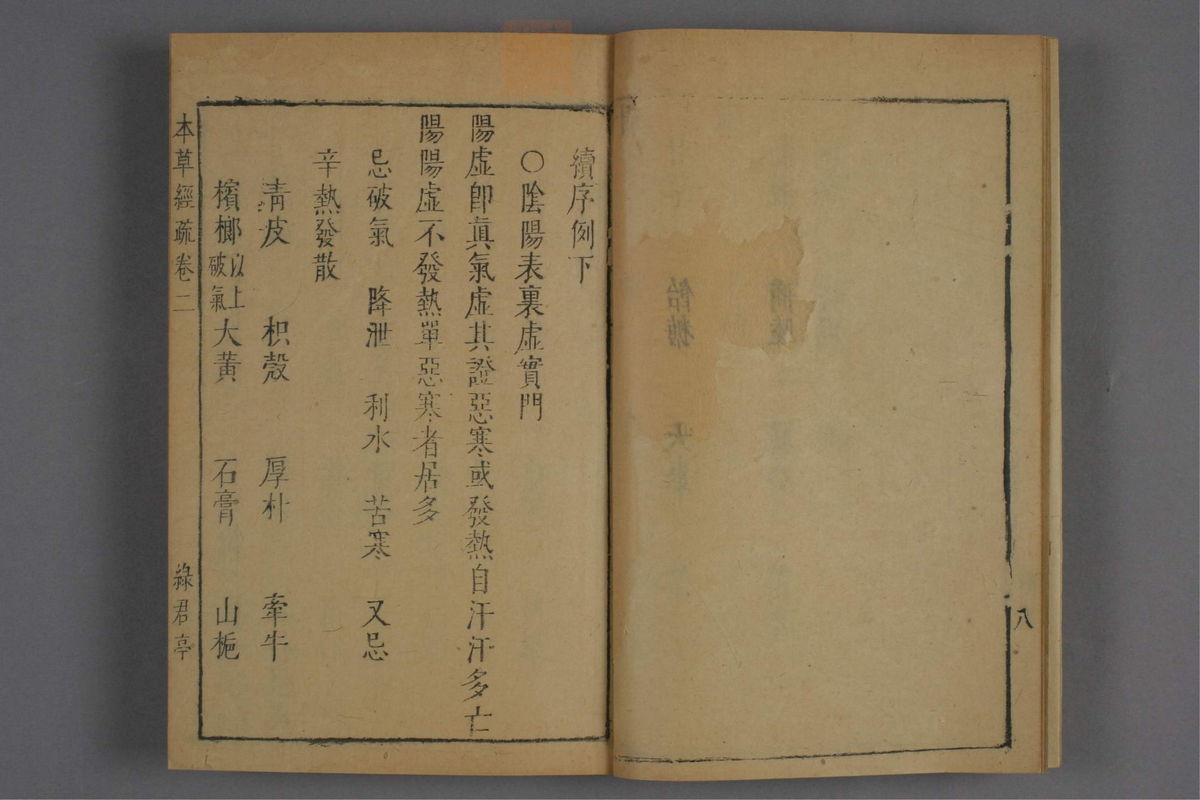 八
續序例下
○陰陽表裏虛實門
陽虛即眞氣虛其證惡寒或發熱自汗汗多亡
陽陽虛不發熱單惡寒者居多
忌破氣 降泄 利水 苦寒 又忌
辛熱發散
靑皮 枳殼 厚朴 牽牛
檳榔以上破氣 大黃 石膏 山梔
本草經疏卷二 綠君亭